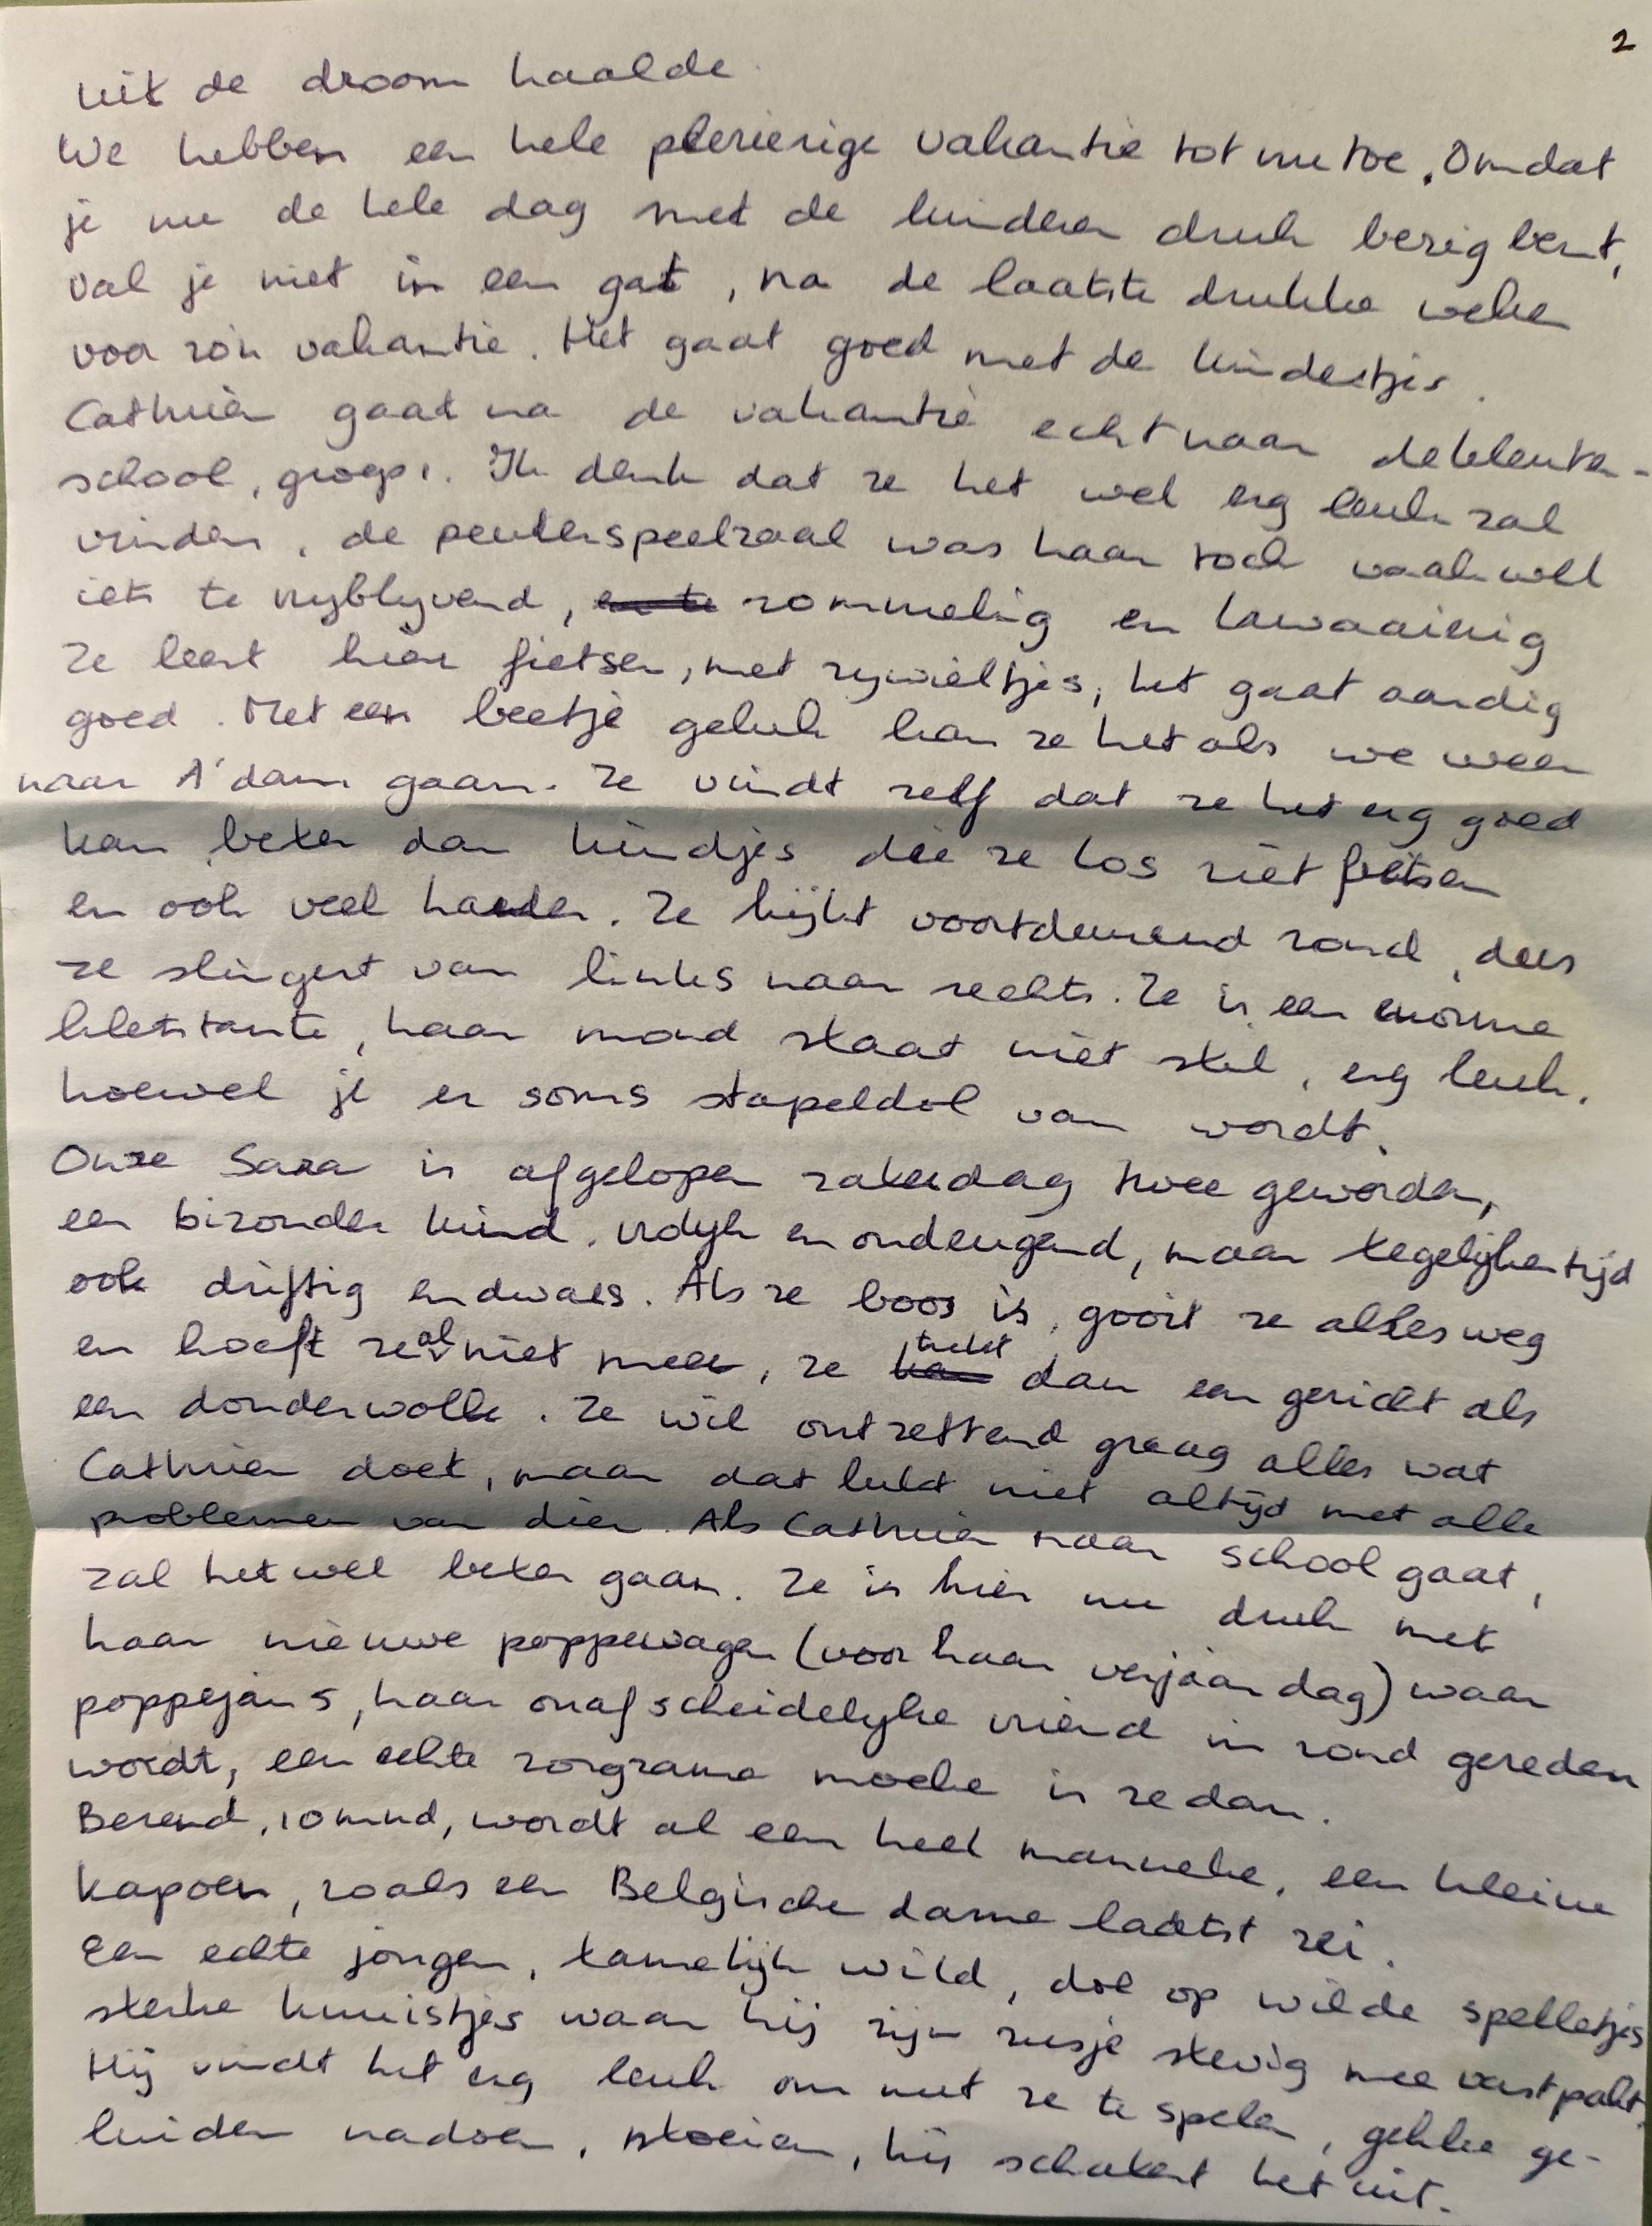 2
uit de droom haalde.
We hebben een hele plezierige vakantie tot nu toe. Omdat
je nu de hele dag met de kinderen druk bezig bent,
val je niet in een gat, na de laatste drukke weken
voor zo'n vakantie. Het gaat goed met de kindertjes.
Cathrien gaat na de vakantie echt naar de kleuter-
school, groep 1. Ik denk dat ze het wel erg leuk zal
vinden, de peuterspeelzaal was haar toch vaak wel
iets te vrijblijvend, en te rommelig en lawaaierig
Ze leert hier fietsen, met zijwieltjes, het gaat aardig
goed. Met een beetje geluk kan ze het als we weer
naar A'dam gaan. Ze vindt zelf dat ze het erg goed
kan, beter dan kindjes die ze los ziet fietsen
en ook veel harder. Ze kijkt voortdurend rond, dus
ze slingert van links naar rechts. Ze is een enorme
kletstante, haar mond staat niet stil, erg leuk,
hoewel je er soms stapeldol van wordt.
Onze Sara is afgelopen zaterdag twee geworden,
een bizonder kind. vrolijk en ondeugend, maar tegelijkertijd
ook driftig en dwars. Als ze boos is, gooit ze alles weg
en hoeft ze al niet meer, ze trekt dan een gezicht als
een donderwolk. Ze wil ontzettend graag alles wat
Cathrien doet, maar dat lukt niet altijd met alle
problemen van dien. Als Cathrien naar school gaat,
zal het wel beter gaan. Ze is hier nu druk met
haar nieuwe poppewagen (voor haar verjaardag) waar
poppejans, haar onafscheidelijke vriend in rond gereden
wordt, een echte zorgzame moeke is ze dan.
Berend, 10 mnd, wordt al een heel manneke, een kleine
kapoen, zoals een Belgische dame laatst zei.
Een echte jongen, tamelijk wild, dol op wilde spelletjes
sterke knuistjes waar hij zijn zusje stevig mee vastpakt.
Hij vindt het erg leuk om met ze te spelen, gekke ge-
luiden nadoen, stoeien, hij schatert het uit.